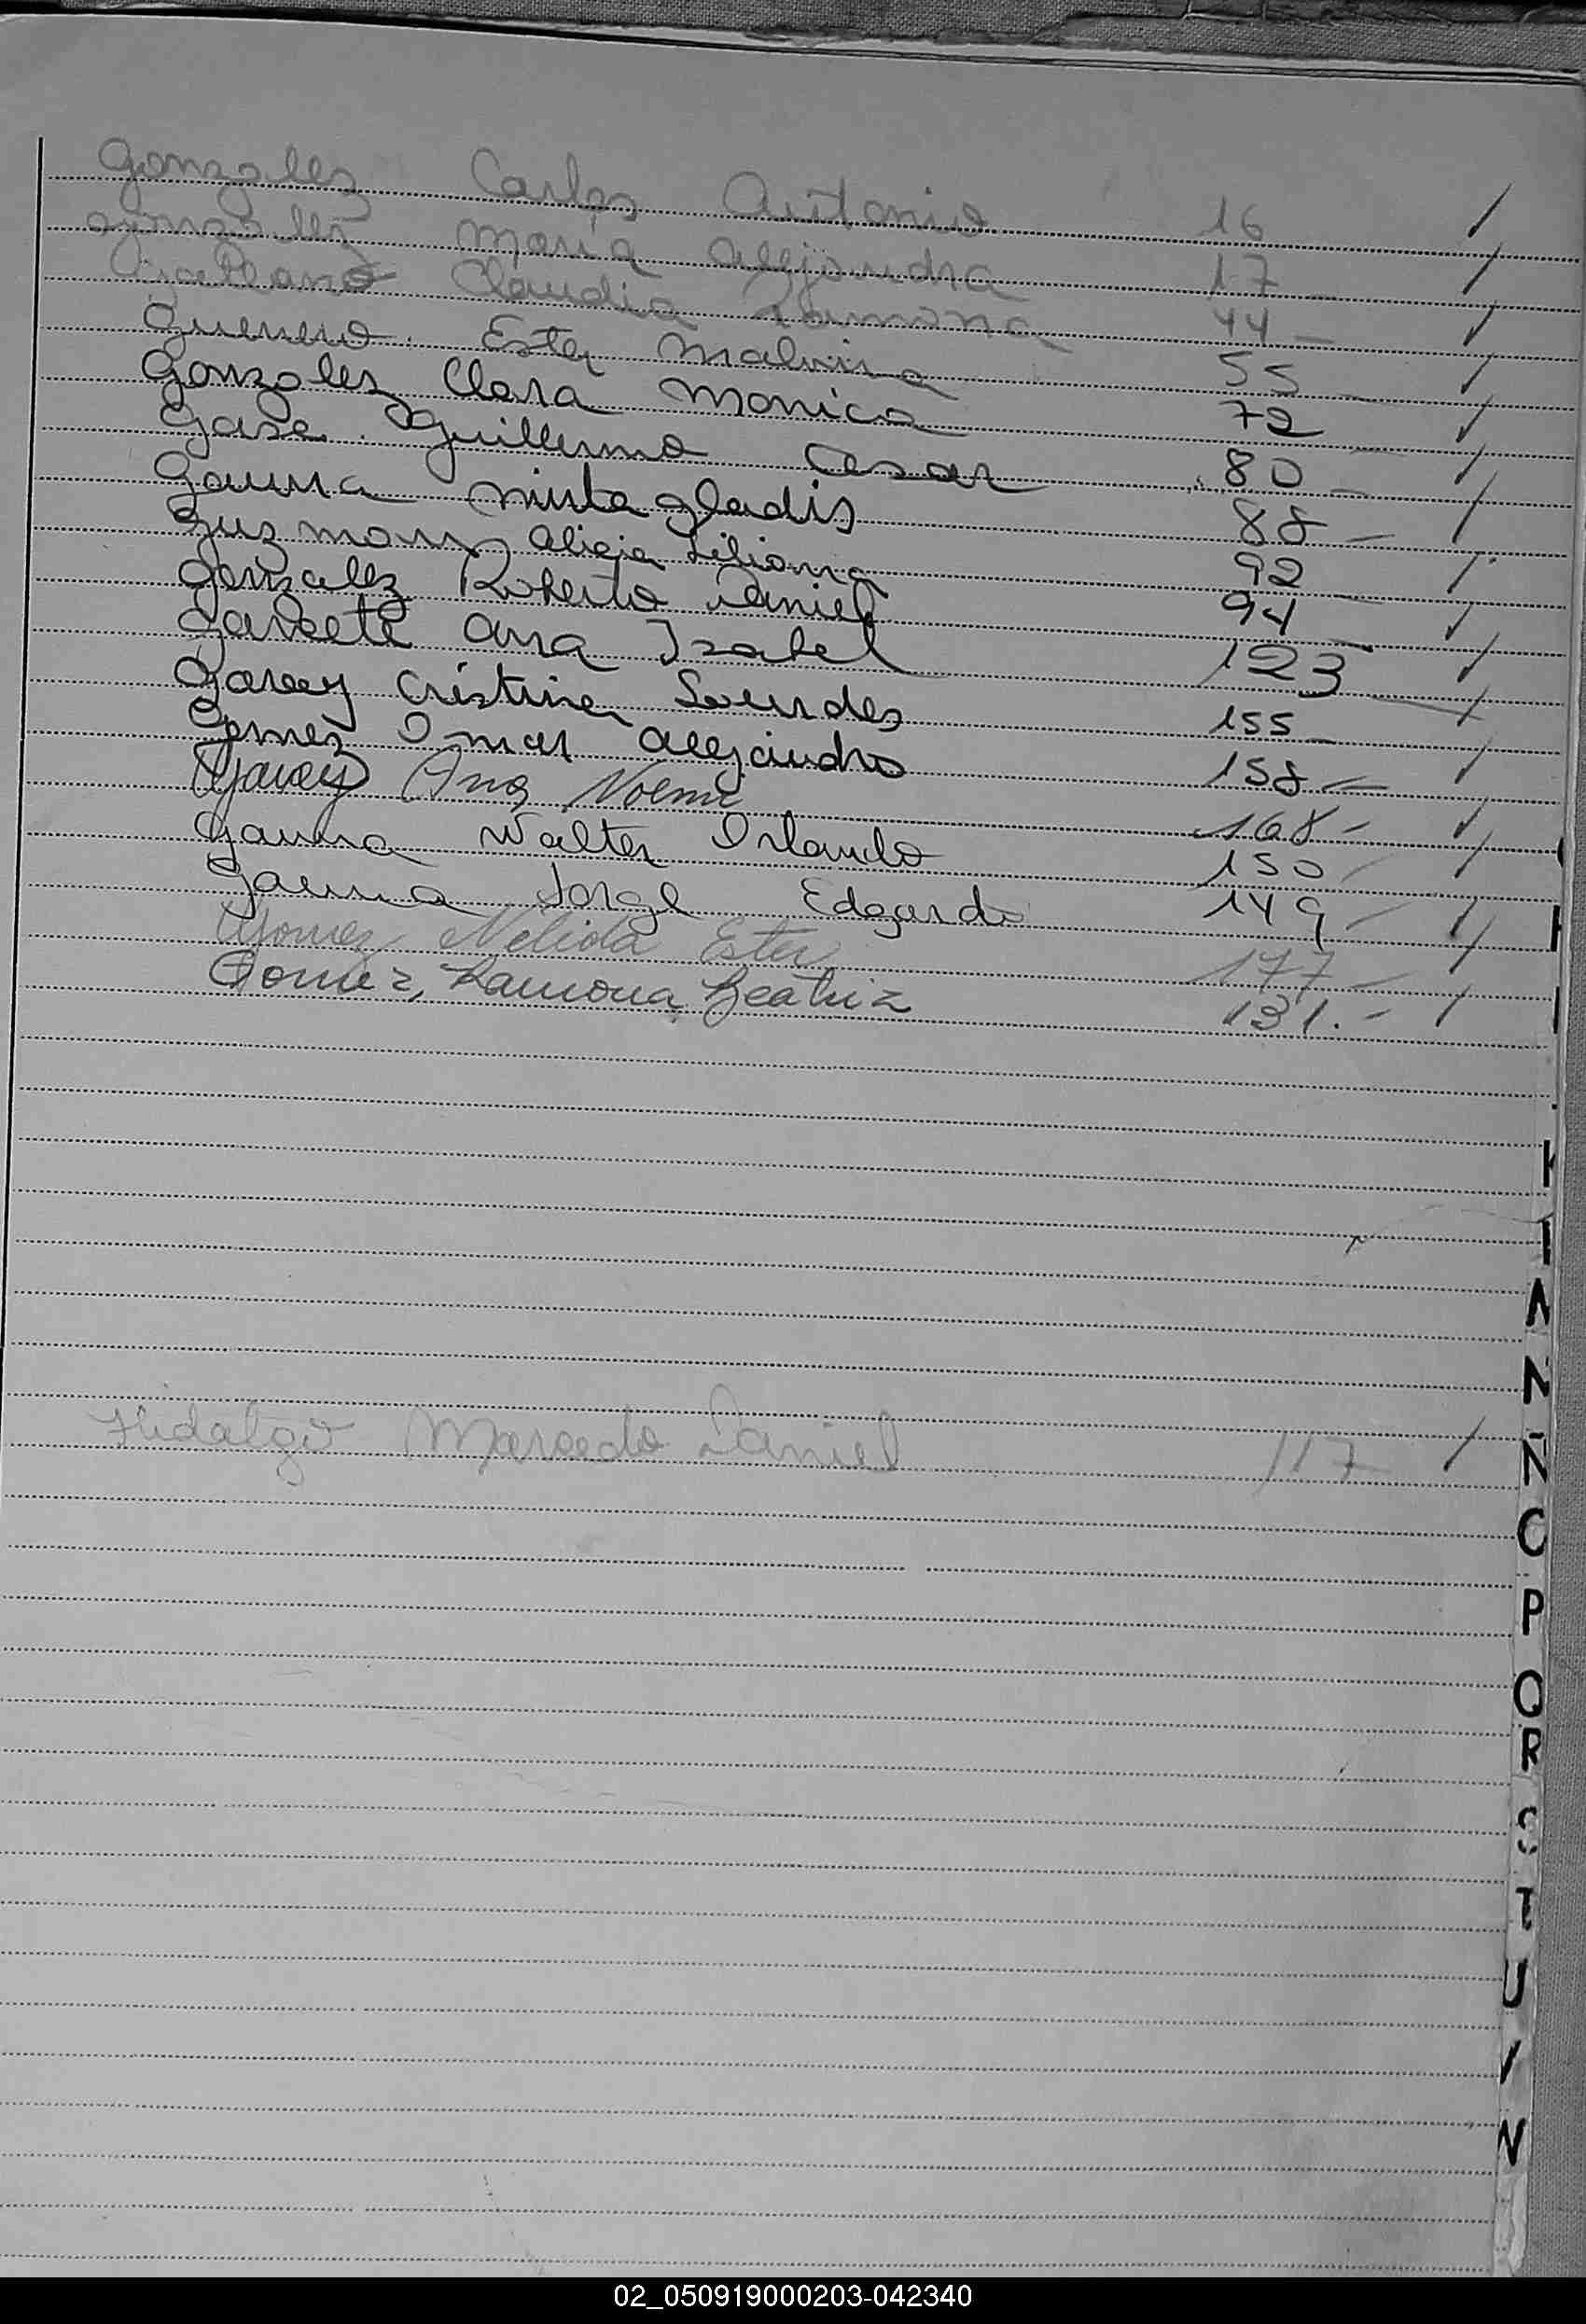 Gonzalez Carlos Antonio 16
Gonzalez Maria Alejandra 17
Claudia Ramona 44 -
Guerrero Ester Malvina 55 -
Gonzalez Clara Monica 72
Gase Guillermo Cesar 80 -
Gauna Mirta Gladis 88 -
Guzman Alicia Liliana 92 -
Gonzalez Roberto Daniel 94 -
Garcete Ana Isabel 123 -
Garay Cristina Lourdes 155 -
Gomez Omar Alejandro 158 -
Garay Ana Noemi 168 -
Gauna Walter Orlando 150 -
Gauna Jorge Edgardo 149 -
Gomez Nelida Ester 177 -
Gomez, Ramona Beatriz 131. -
Hidalgo Marcedo Daniel 117
A
N
Ñ
O
P
Q
R
S
T
U
V
02_050919000203-042340